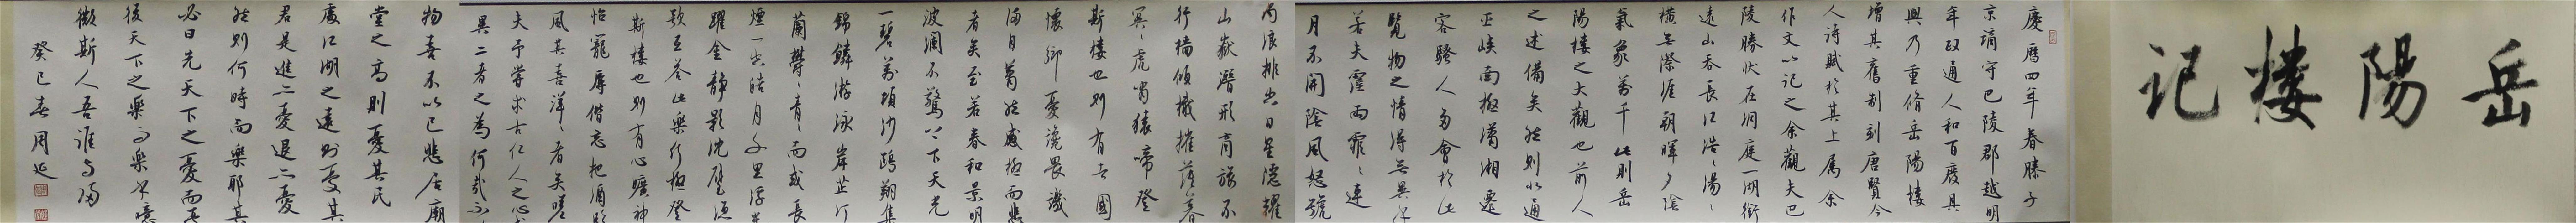 岳陽楼记
慶曆四年春滕子
京謫守巴陵郡越明
年政通人和百廢具
興乃重脩岳陽樓
增其舊制刻唐賢今
人詩賦於其上属余
作文以記之余觀夫巴
陵勝状在洞庭一湖銜
遠山吞長江浩々湯々
橫無際涯朝暉夕陰
氣象萬千此則岳
陽樓之大觀也前人
之述備矣然則北通
巫峽南極瀟湘遷
客騷人多會於此
覽物之情得無異乎
若夫霪雨霏々連
月不開陰風怒號
濁浪排空日星隱耀
山嶽潛形商旅不
行檣傾檝摧薄暮
冥々虎嘯猿啼登
斯樓也則有去國
懷鄉憂讒畏譏
滿目蕭然感極而悲
者矣至若春和景明
波瀾不驚上下天光
一碧萬頃沙鷗翔集
錦鱗游泳岸芷汀
蘭鬱々青々而或長
煙一空皓月千里浮光
躍金靜影沈璧漁
歌互答此樂何極登
斯樓也則有心曠神
怡寵辱偕忘把酒臨
風其喜洋々者矣嗟
夫予嘗求古仁人之心或
異二者之為何哉不以
物喜不以己悲居廟
堂之高則憂其民
處江湖之遠則憂其
君是進亦憂退亦憂
然則何時而樂耶其
必曰先天下之憂而憂
後天下之樂而樂乎噫
微斯人吾誰與歸
癸巳春周延